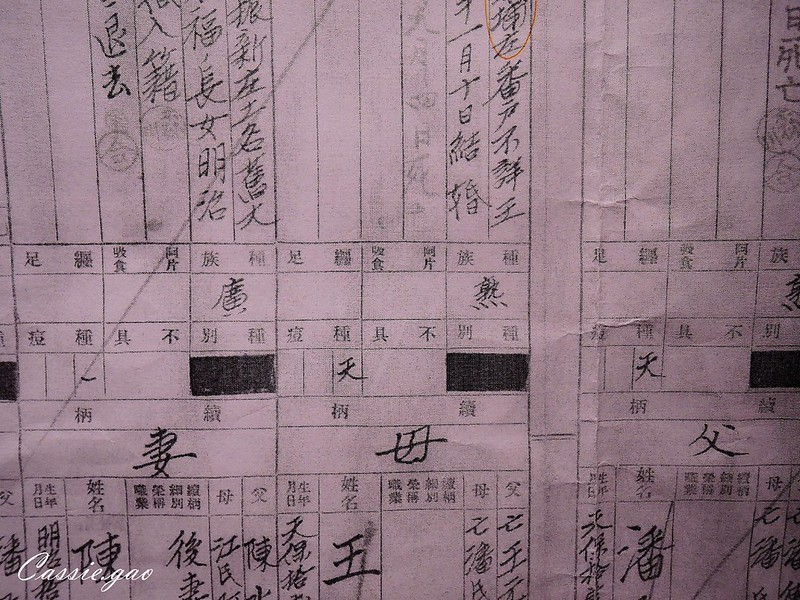 日死亡
埔庄番戶不詳王
一月十日結婚
月四日死
振新庄土名舊大
福長女明治
入籍
退去
族
阿片吸食
纏足
種族
阿片吸食
纏足
種族
阿片吸食
纏足
熟
廣
別
不具
種痘
種別
不具
種痘
種別
不具
種痘
天
天
一
續柄
續柄
續柄
父
母
妻
母
續柄細別榮稱職業
姓名
生年月日
父
母
續柄細別榮稱職業
姓名
生年月日
父
母
續柄細別榮稱職業
姓名
生年月日
父
亡潘
潘
天保拾
亡王
亡潘氏
王
天保拾
陳
江氏
後妻
陳
明治拾
潘
Cassie.gao